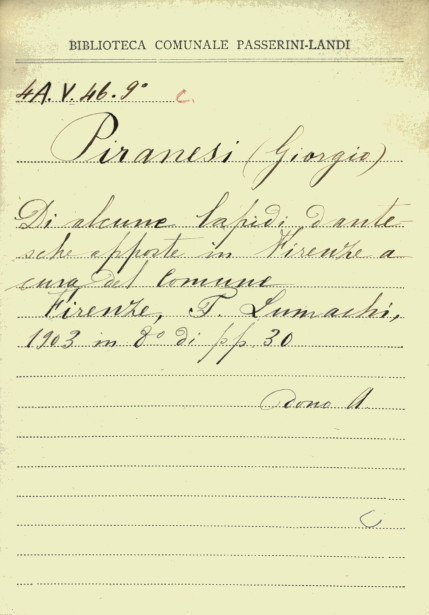 BIBLIOTECA COMUNALE PASSERINI-LANDI
4A. V. 46. 9° c.
Piranesi (Giorgio)
Di alcune lapidi dante-
sche apposte in Firenze a
cura del Comune
Firenze, F. Lumachi,
1903 in 8° di pp. 30
dono A.